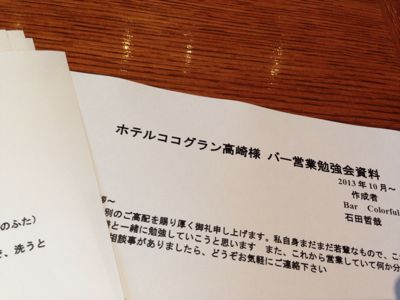 ホテルココグラン高崎様 バー営業勉強会資料
2013年10月～
作成者
Bar Colorful
石田哲哉
拶～
別のご高配を賜り厚く御礼申し上げます。私自身まだまだ若輩なもので、こ
と一緒に勉強していこうと思います また、これから営業していて何か分
相談事がありましたら、どうぞお気軽にご連絡下さい
のふた）
で、洗うと